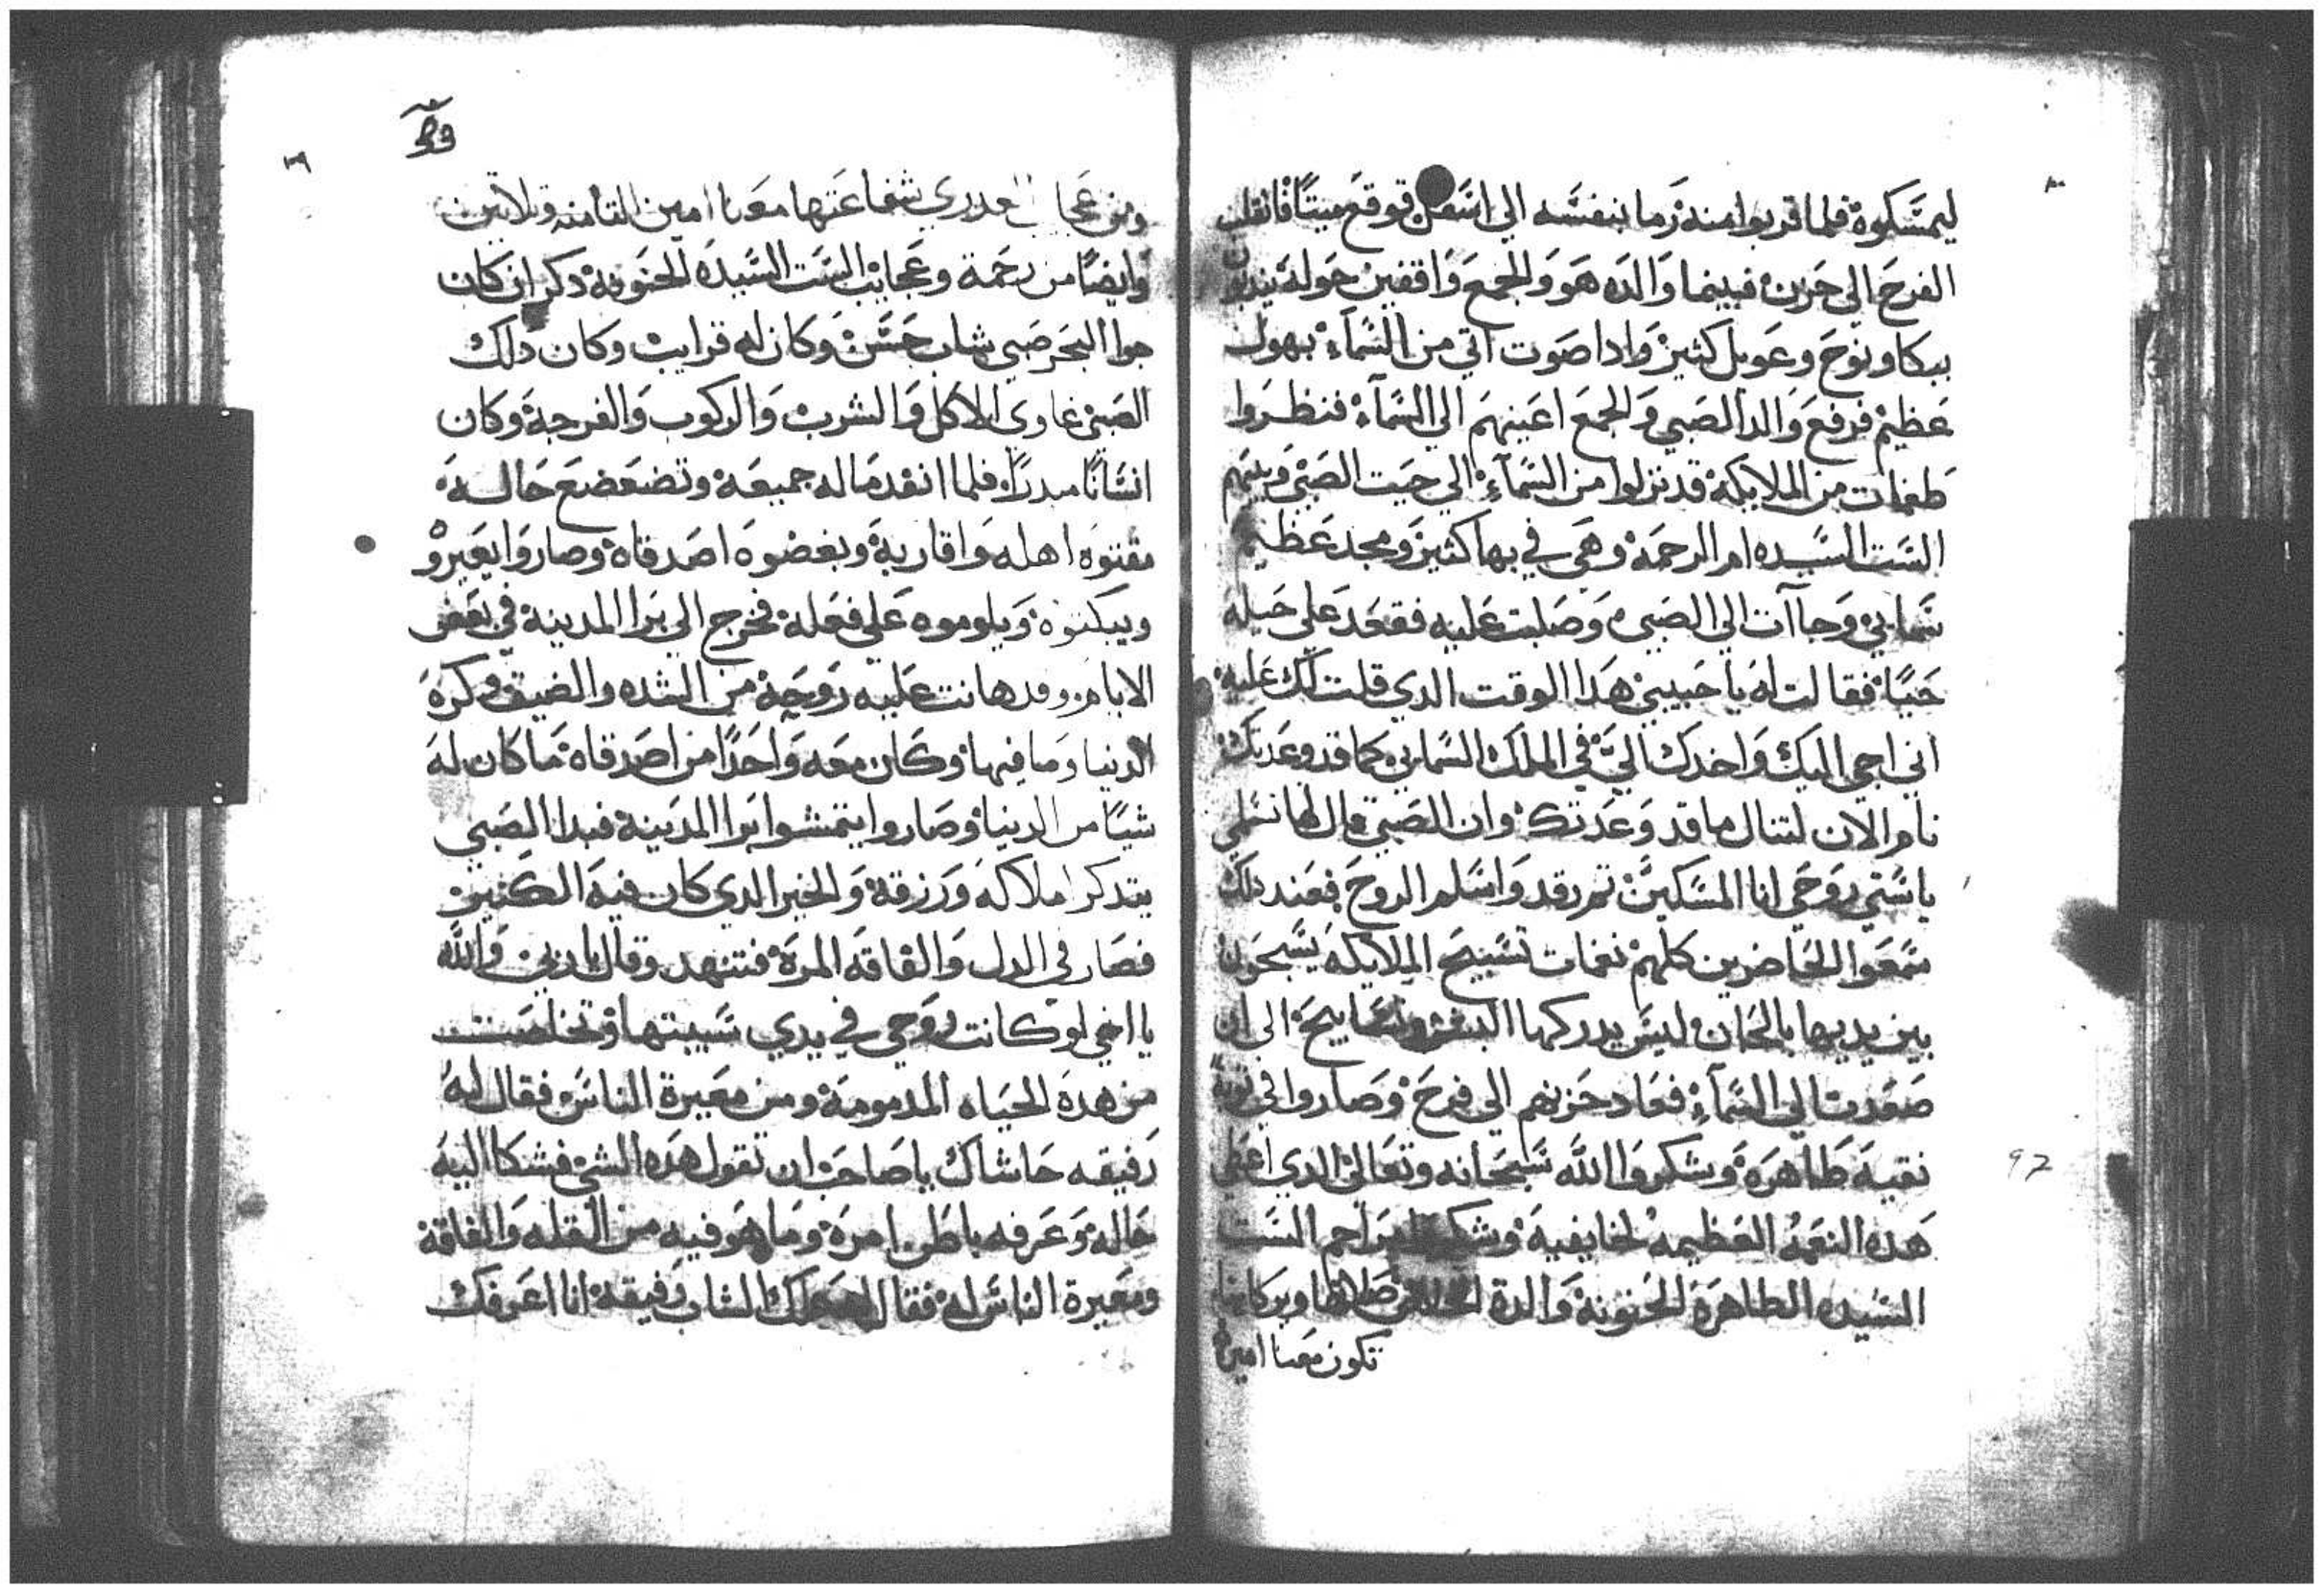 ليمسكوة فلما قربوا منة رما بنفسه الي اسفل فوقع ميتا فانقلب
الفرح الي حزن فبينما والده هو والجمع واقفين حوله يندبون
ببكا ونوح وعويل كثير وادا صوت اتي من السماء بهول
عظيم فرفع والد الصبي والجمع اعينهم الي السماء فنظروا
طغمات من الملايكة قد نزلوا من السماء الي حيت الصبي وبينهم
الست السيده ام الرحمة وهي في بها كثير ومجد عظيم
سمايي وجاآت الي الصبي وصلبت عليه فقعد علي حيله
حيا فقالت له يا حبيبي هدا الوقت الدي قلت لك عليه
اني اجي اليك واخدك الي في الملك السمايي كما قد وعدتك
نام الان لتنال ما قد وعدتك وان الصبي قال لها تسلمي
يا ستي روحي انا المسكين تم رقد واسلم الروح فعند دلك
سمعوا الحاضرين كلهم نغمات تسبيح الملايكه يسبحون
بين يديها بالحان ليس يدركها البشر الي ان
صعدت الي السماء فعاد حزنهم الي فرح وصاروا في توبة
نقية طاهرة وشكروا الله سبحانه وتعالي الدي اعطي
هده النعمة العظيمه لخايفية مراحم الست
السيده الطاهرة الحنونة والدة صلاتها وبركاتها
تكون معنا امين
٩٢
ومن شفاعتها معنا امين التامنه وتلاتين
وايضا من رحمة وعجايب الست السيده الحنونة دكر ان كان
جوا البحر صبي شاب حسن وكان له قرايب وكان دلك
الصبي غاوي الاكل والشرب والركوب والفرجة وكان
انسانا مبدرا فلما انفد ماله جميعة وتضعضع حاله
مقتوه اهله واقاربة وبغضوه اصدقاة وصاروا يعيرو
ويبكتوة ويلوموه علي فعله فخرج الي برا المدينة في بعض
الايام وقد هانت عليه روحه من الشده والضيق وكره
الدنيا وما فيها وكان معه واحدا من اصدقاة ما كان له
شيا من الدنيا وصاروا يتمشوا برا المدينة فبدا الصبي
يتدكر املاكه ورزقة والخير الدي كان فية الكتير
فصار في الدل والفاقه المرة فتنهد وقال يا ربي والله
يا اخي لو كانت روحي في يدي سيبتها وتخلصت
من هدة الحياه المدمومة ومن معيرة الناس فقال له
رفيقه حاشاك يا صاحب ان تقول هده الشي فشكا اليه
حاله وعرفه باطن امرة وما هو فيه من القله والفاقة
ومعيرة الناس له فقال الشاب رفيقه انا اعرفك